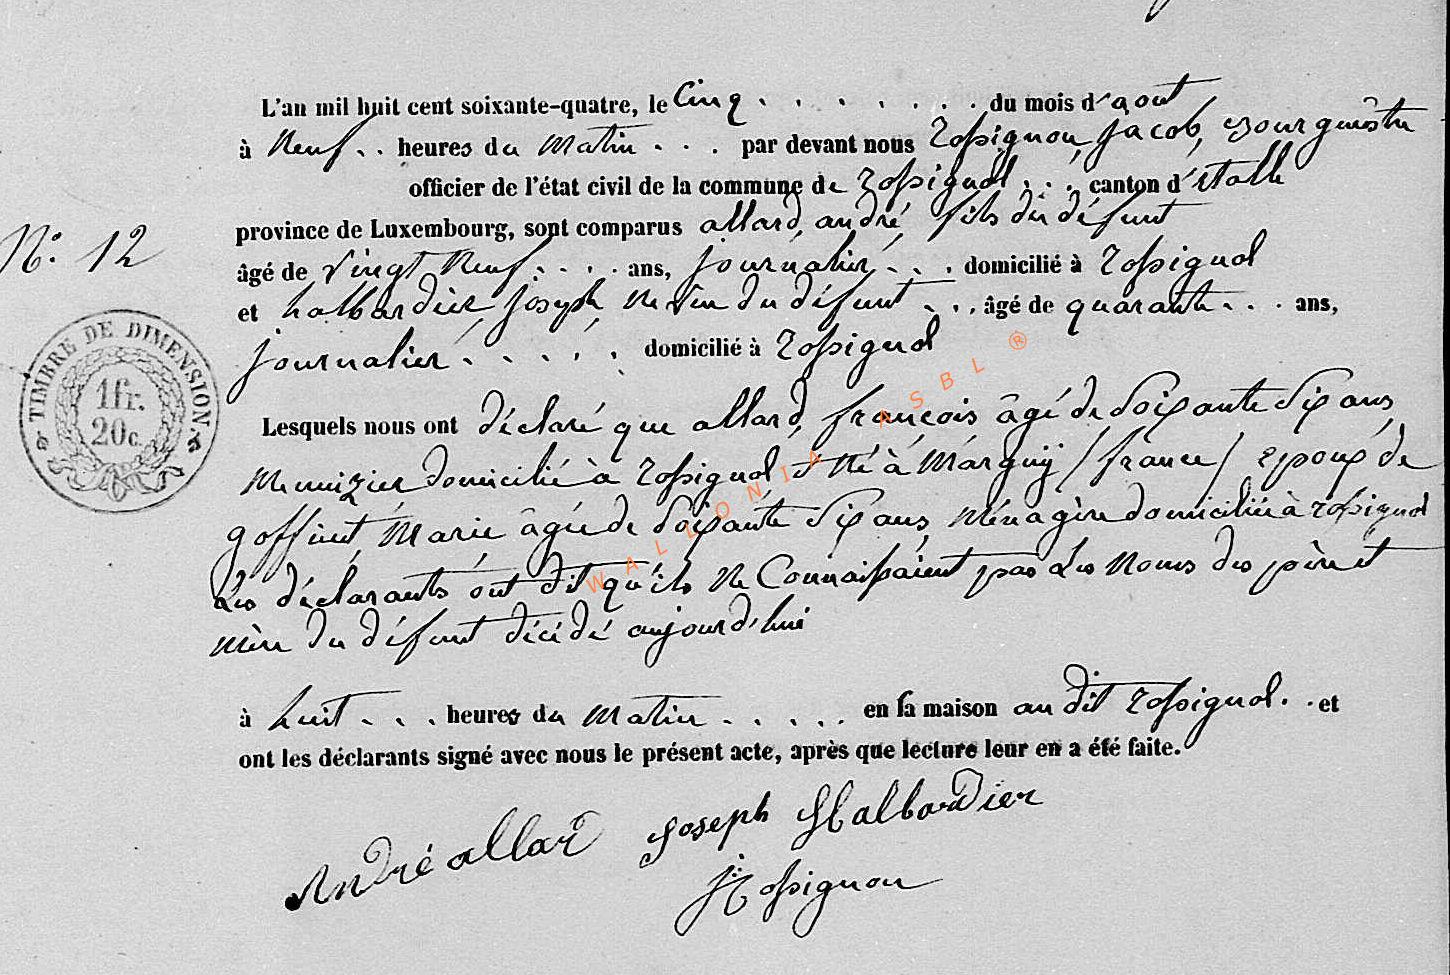 L'an mil huit cent soixante-quatre, le Cinq . . . . . . . . du mois d'aout
à Neuf . . heures du Matin . . . par devant nous Rossignon, Jacob, Bourguestre
officier de l'état civil de la commune de Rossignol . . . canton d'Etalle
province de Luxembourg, sont comparus allard, andré, fils du défunt
N° 12
âgé de Vingt Neuf . . . . ans, journalier . . . domicilié à Rossignol
et halbardier, joseph, Neveu du défunt . . . âgé de quarante . . . ans,
journalier . . . . . domicilié à Rossignol
TIMBRE DE DIMENSION.
1fr.
20c.
Lesquels nous ont déclaré que allard, françois âgé de Soixante Six ans,
Menuizier domicilié à Rossignol et Né à Margny (france) Epoux de
goffinet Marie âgée de Soixante Six ans, Ménagère domiciliée à Rossignol
Les déclarants ont dit qu'ils Ne Connaissaient pas Les Noms des père et
Mère du défunt décédé aujourd'hui
à huit . . . heures du Matin . . . . . en sa maison au dit Rossignol . . et
ont les déclarants signé avec nous le présent acte, après que lecture leur en a été faite.
André allard Joseph Halbardier
J Rossignon
WALLONIA ASBL ®